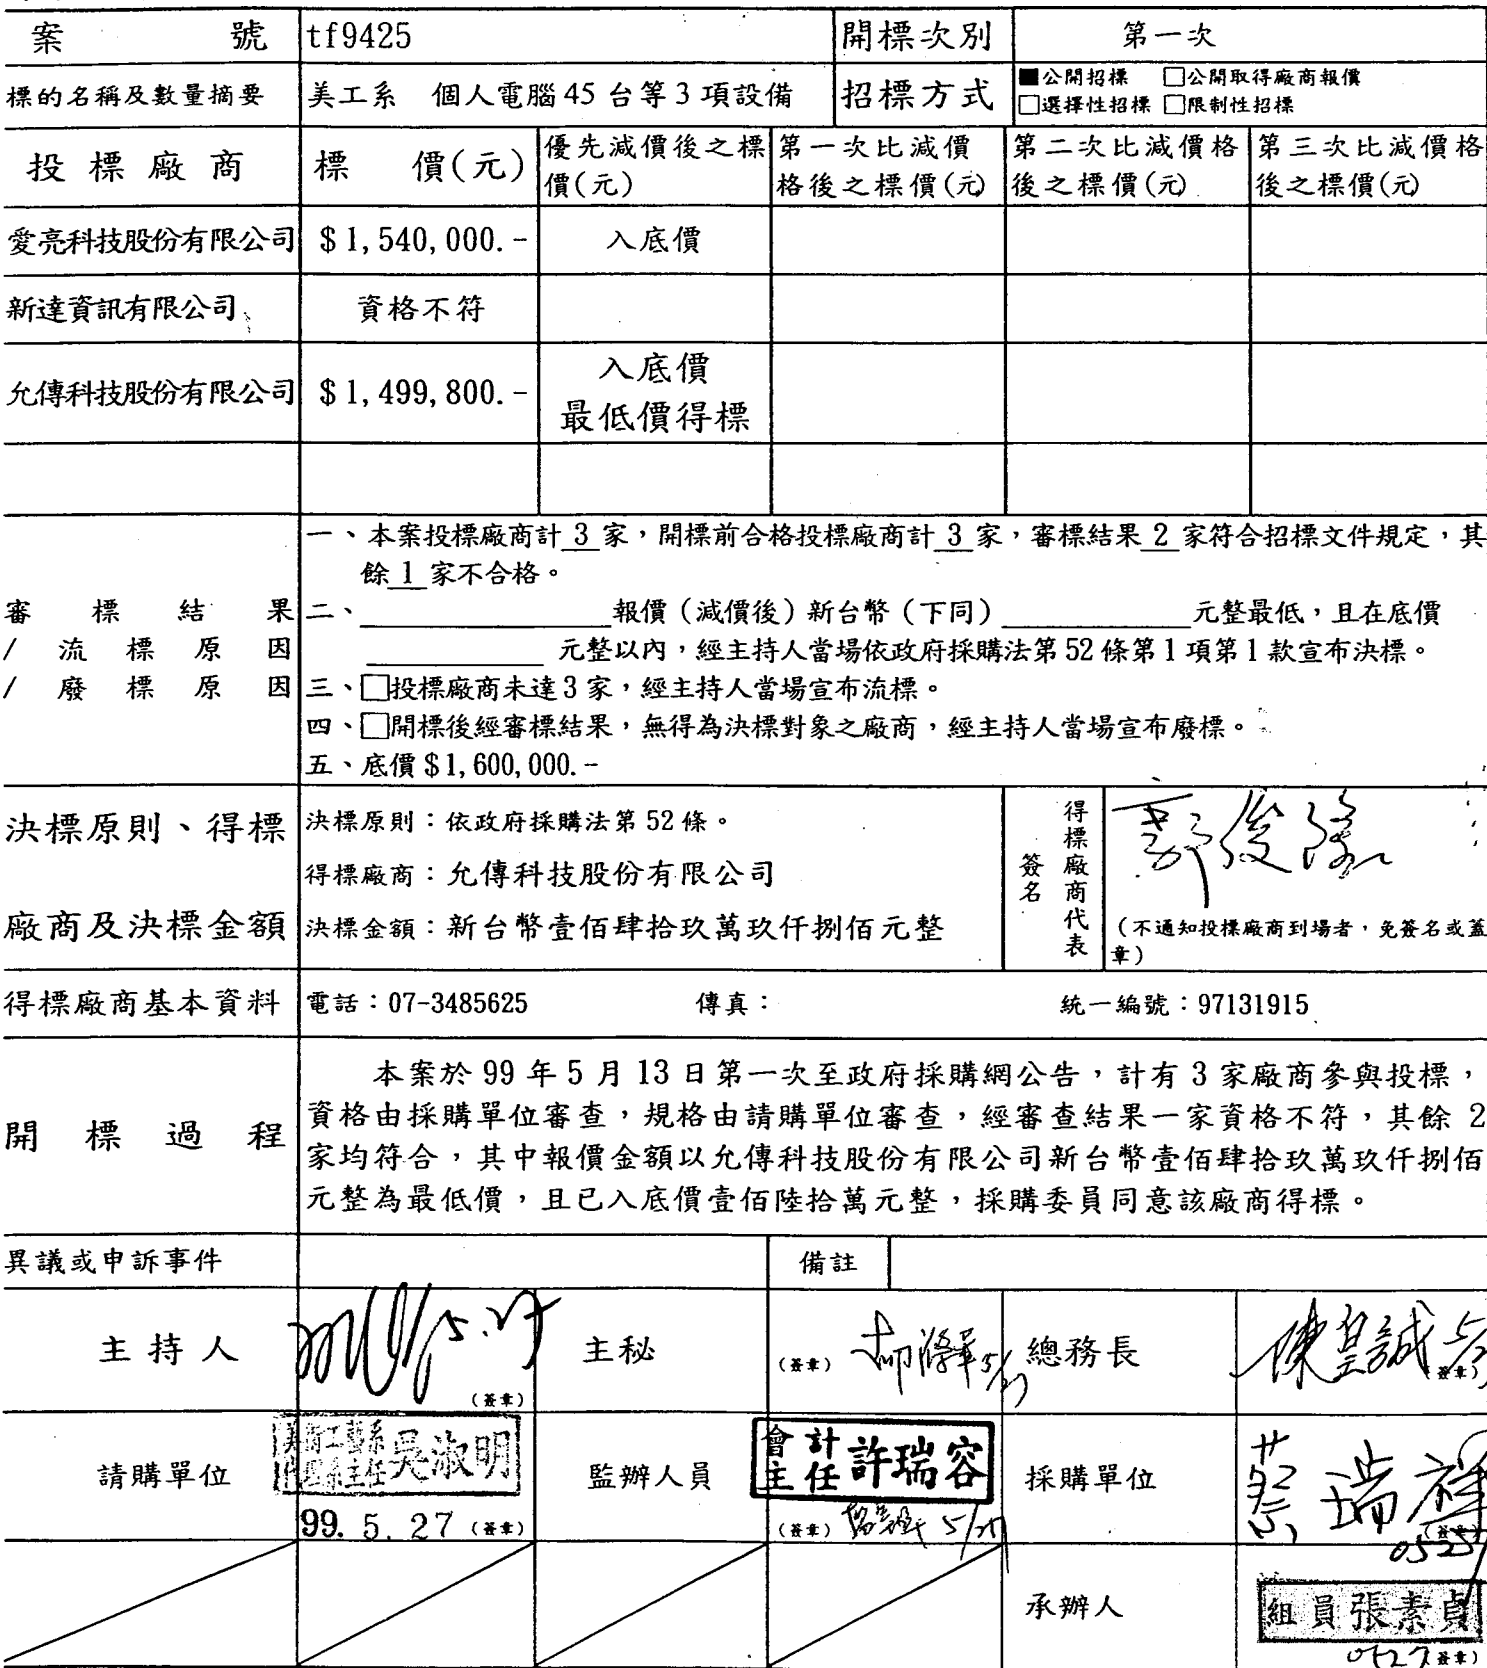 案 號 tf9425 開標次別 第一次
標的名稱及數量摘要 美工系 個人電腦45台等3項設備 招標方式 ■公開招標 □公開取得廠商報價
□選擇性招標 □限制性招標
投標廠商 標 價(元) 優先減價後之標價(元) 第一次比減價格後之標價(元) 第二次比減價格後之標價(元) 第三次比減價格後之標價(元)
愛亮科技股份有限公司 $1,540,000.- 入底價
新達資訊有限公司 資格不符
允傳科技股份有限公司 $1,499,800.- 入底價
最低價得標
審標結果
/流標原因
/廢標原因
一、本案投標廠商計 3 家,開標前合格投標廠商計 3 家,審標結果 2 家符合招標文件規定,其
餘 1 家不合格。
二、 報價(減價後)新台幣(下同) 元整最低,且在底價
元整以內,經主持人當場依政府採購法第52條第1項第1款宣布決標。
三、□投標廠商未達3家,經主持人當場宣布流標。
四、□開標後經審標結果,無得為決標對象之廠商,經主持人當場宣布廢標。
五、底價$1,600,000.-
決標原則、得標
廠商及決標金額
決標原則:依政府採購法第52條。
得標廠商:允傳科技股份有限公司
決標金額:新台幣壹佰肆拾玖萬玖仟捌佰元整
得標廠商代表
簽名
(不通知投標廠商到場者,免簽名或蓋
章)
得標廠商基本資料 電話:07-3485625 傳真: 統一編號:97131915
開標過程
本案於99年5月13日第一次至政府採購網公告,計有3家廠商參與投標,
資格由採購單位審查,規格由請購單位審查,經審查結果一家資格不符,其餘2
家均符合,其中報價金額以允傳科技股份有限公司新台幣壹佰肆拾玖萬玖仟捌佰
元整為最低價,且已入底價壹佰陸拾萬元整,採購委員同意該廠商得標。
異議或申訴事件 備註
主持人 5.27 (簽章) 主秘 (簽章) 總務長 陳皇誠 (簽章)
請購單位 吳淑明 99.5.27 (簽章) 監辦人員 會計主任 許瑞容 (簽章) 採購單位 蔡瑞祥 (簽章)
承辦人 組員張素貞
0527 (簽章)